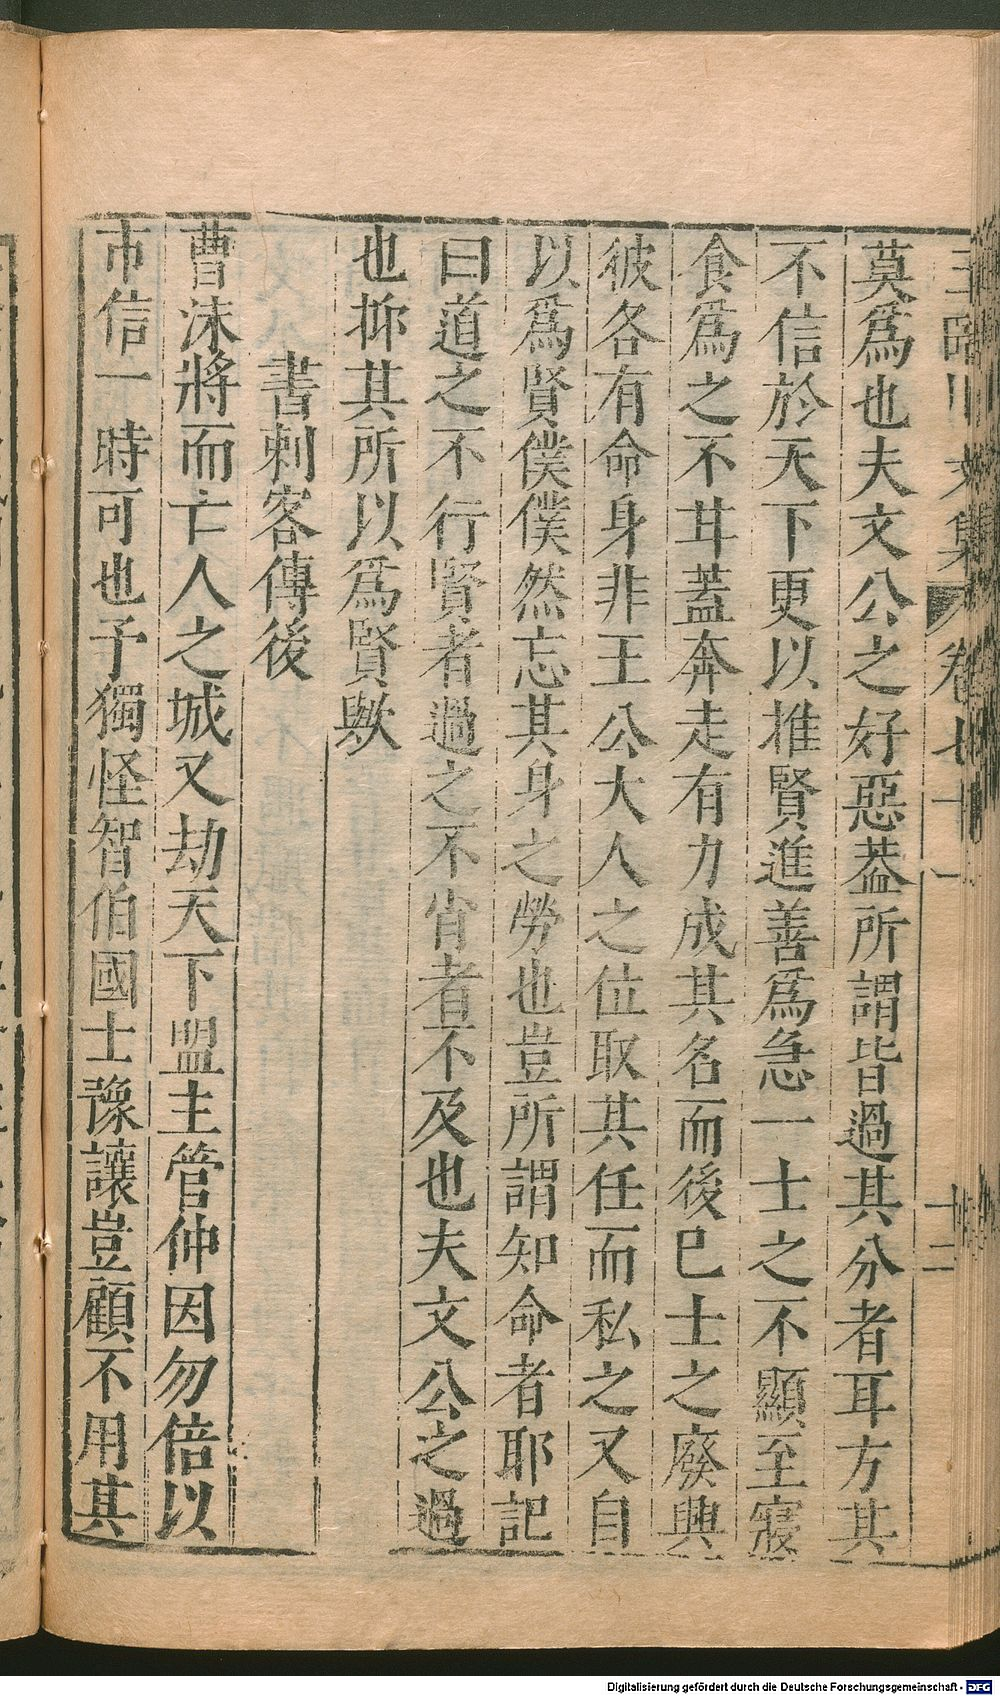 王臨川文集 卷七十一 十二
莫爲也夫文公之好惡葢所謂皆過其分者耳方其
不信於天下更以推賢進善爲急一士之不顯至寢
食爲之不甘蓋奔走有力成其名而後已士之廢興
彼各有命身非王公大人之位取其任而私之又自
以爲賢僕僕然忘其身之勞也豈所謂知命者耶記
曰道之不行賢者過之不肖者不及也夫文公之過
也抑其所以爲賢歟
書刺客傳後
曹沬將而亡人之城又劫天下盟主管仲因勿倍以
市信一時可也予獨怪智伯國士豫讓豈顧不用其
Digitalisierung gefördert durch die Deutsche Forschungsgemeinschaft - DFG